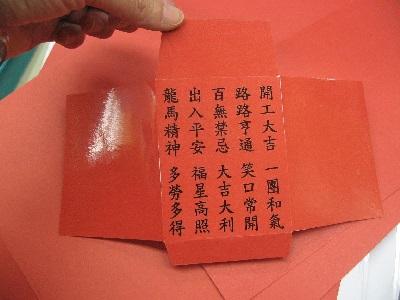 開工大吉
路路亨通
百無禁忌
出入平安
龍馬精神
一團和氣
笑口常開
大吉大利
福星高照
多勞多得